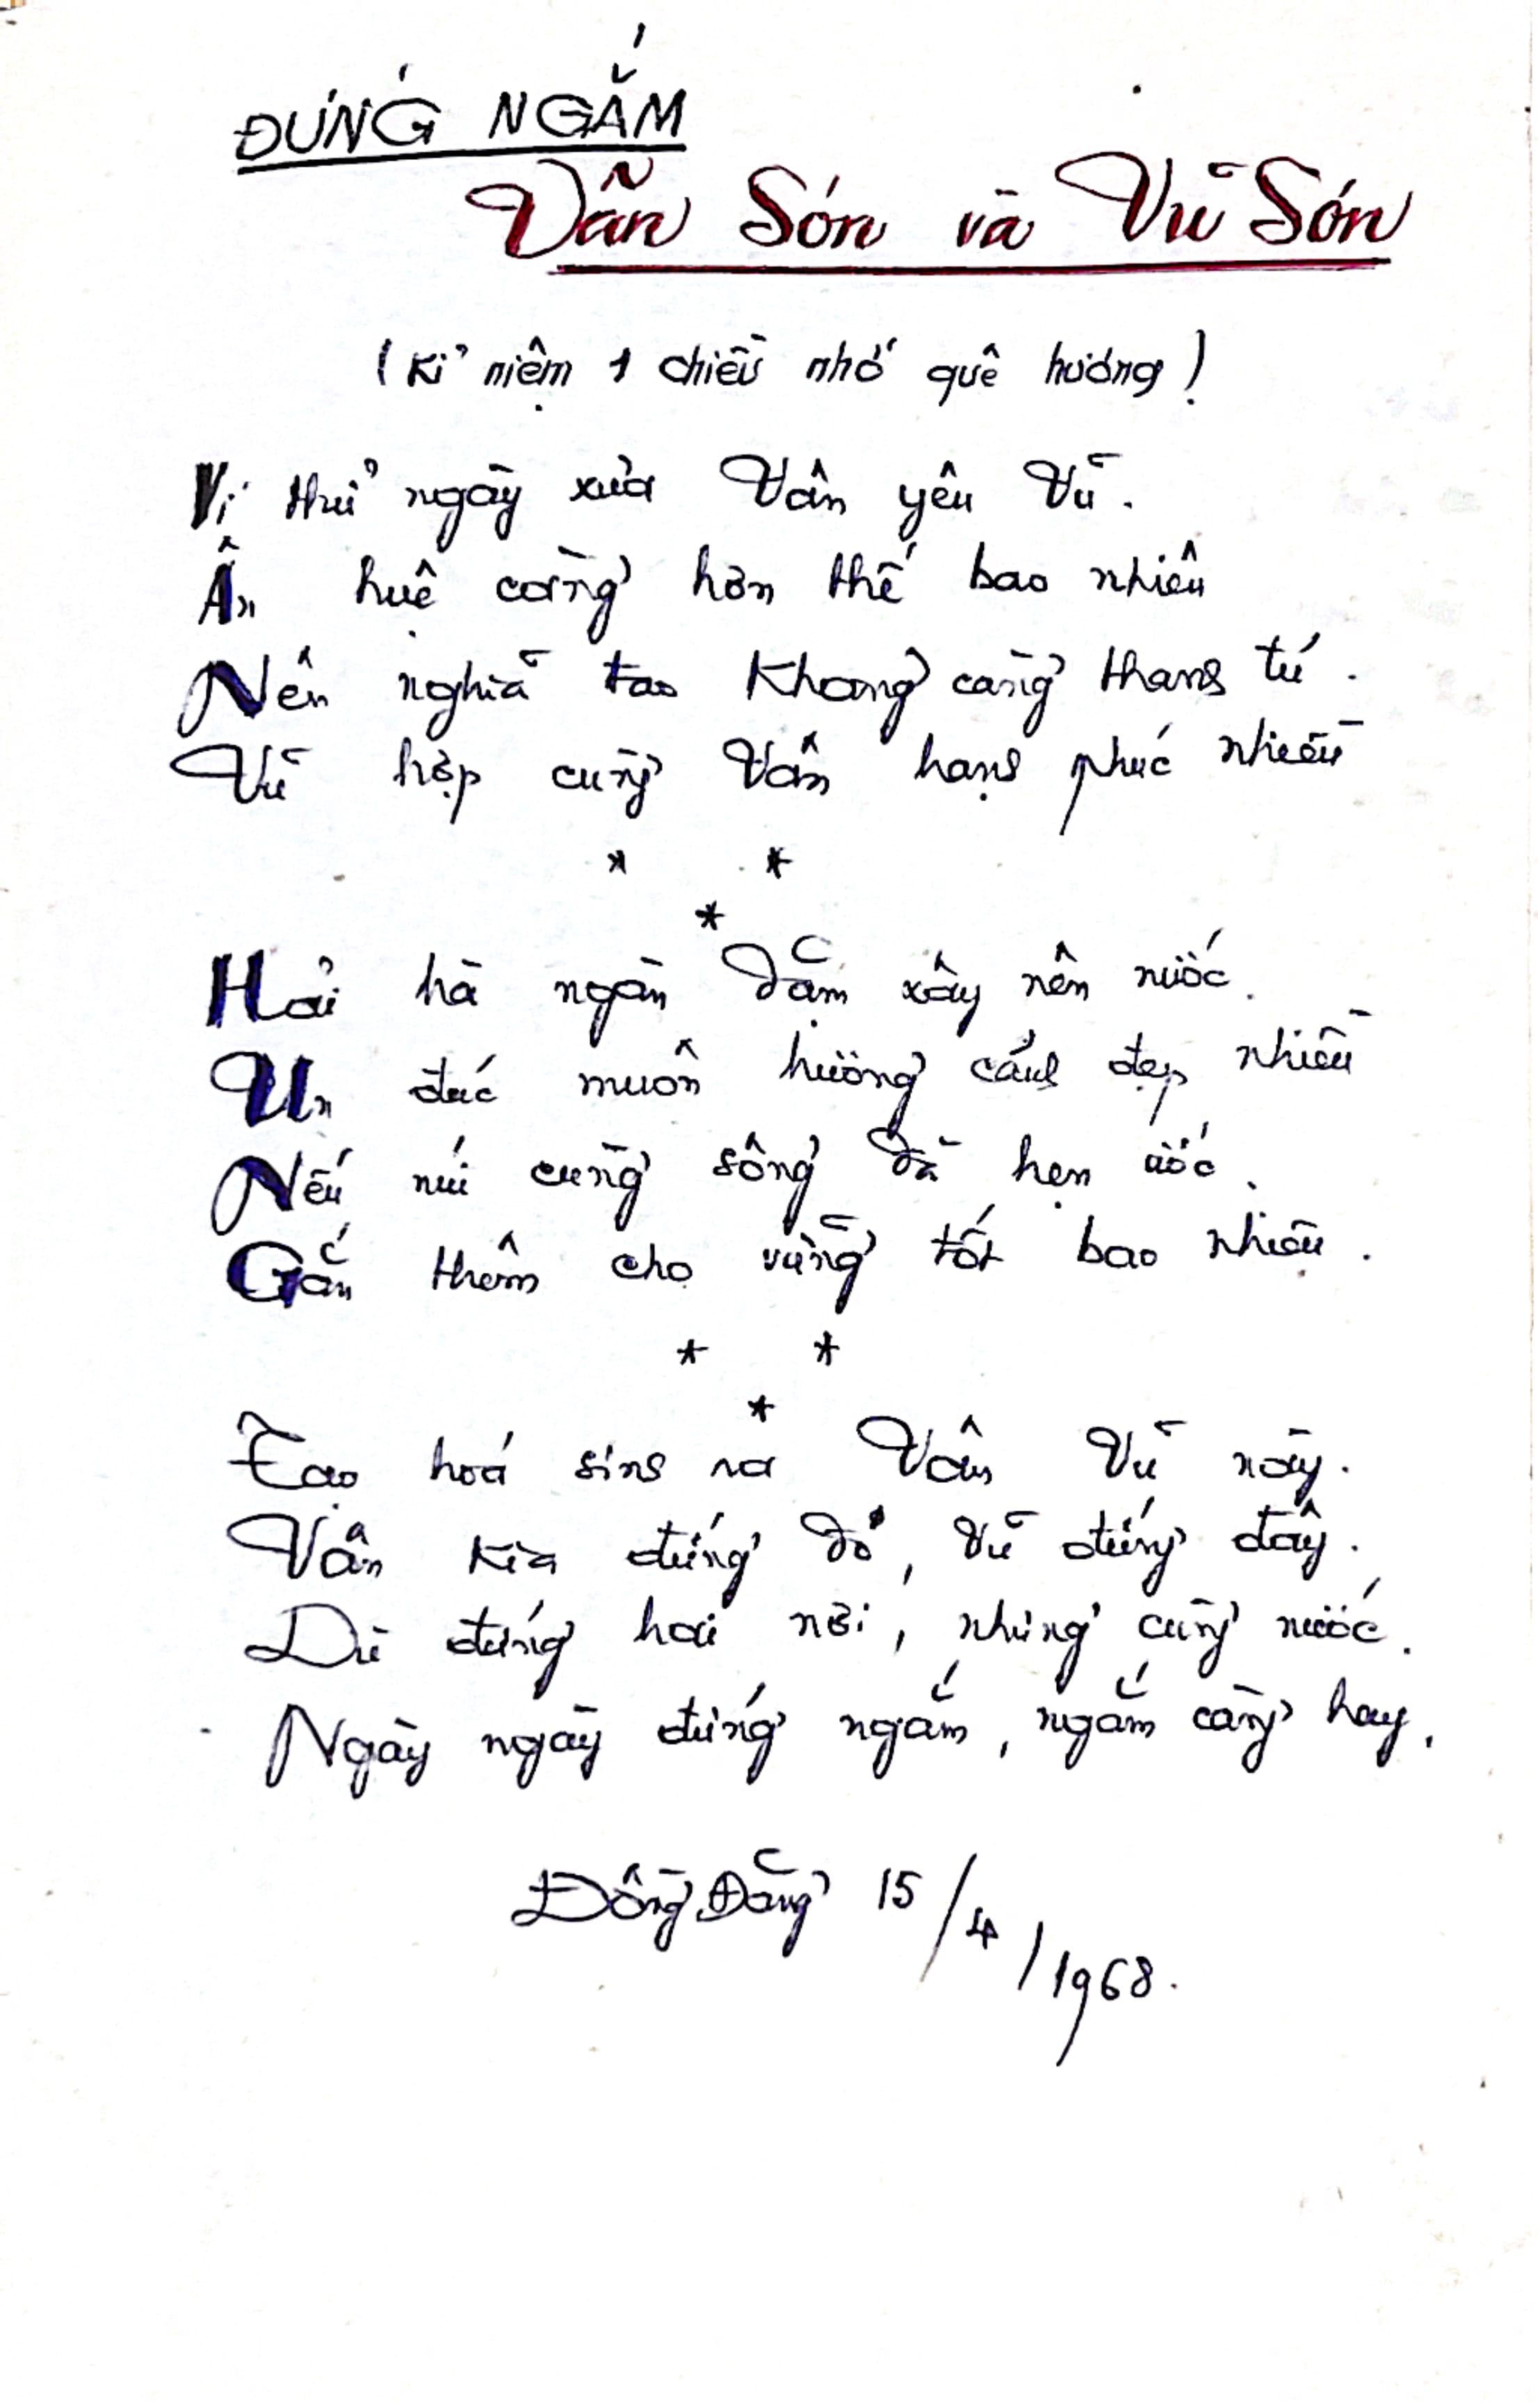 ĐỨNG NGẮM
Vân Sơn và Vũ Sơn
(Kỉ niệm 1 chiều nhớ quê hương)
Ví thuở ngày xưa Vân yêu Vũ.
Ân huệ càng hơn thế bao nhiêu
Nên nghĩa tao khang càng thanh tú.
Vũ hợp cùng Vân hạnh phúc nhiều
* *
*
Hải hà ngàn dặm xây nên nước.
Un đúc muôn hường cảnh đẹp nhiều
Nếu núi cùng sông đã hẹn ước.
Gắn thêm cho vững tốt bao nhiêu.
* *
*
Tạo hoá sinh ra Vân Vũ này.
Vân kia đứng đó, Vũ đứng đây.
Dù đứng hai nơi, nhưng cùng nước.
Ngày ngày đứng ngắm, ngắm càng hay.
Đồng Đăng 15/4/1968.